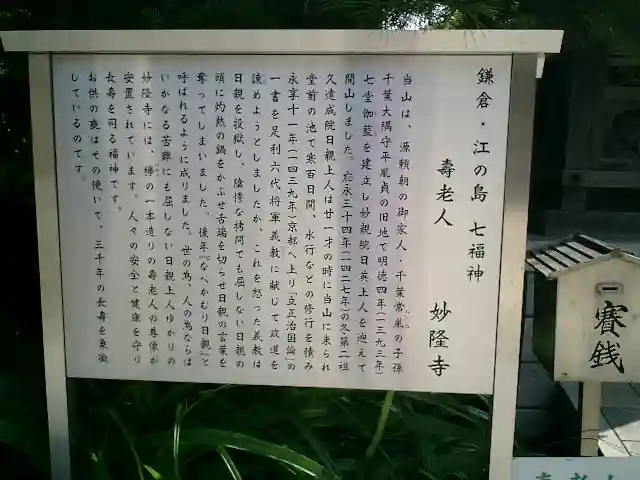 鎌倉・江の島 七福神
壽老人 妙隆寺
当山は、源頼朝の御家人・千葉常胤の子孫
千葉大隅守平胤貞の旧地で明徳四年(一三九三年)
七堂伽藍を建立し妙親院日英上人を迎えて
開山しました。応永三十四年(一四二七年)の冬、第二祖
久遠成院日親上人は廿一才の時に当山に来られ
堂前の池で寒百日間、水行などの修行を積み
永享十一年(一四三九年)京都へ上り「立正治国論」の
一書を足利六代将軍義教に献じて政道を
諫めようとしましたが、これを怒った義教は
日親を投獄し、陰惨な拷問でも屈しない日親の
頭に灼熱の鍋をかぶせ舌端を切らせ日親の言葉を
奪ってしまいました。後年『なべかむり日親』と
呼ばれるように成りました。世の為、人の為ならば
いかなる苦難にも屈しない日親上人ゆかりの
妙隆寺には、欅の一本造りの壽老人の尊像が
安置されています。人々の安全と健康を守り
長壽を司る福神です。
お供の鹿はその使いで、三千年の長壽を象徴
しているのです。
賽銭